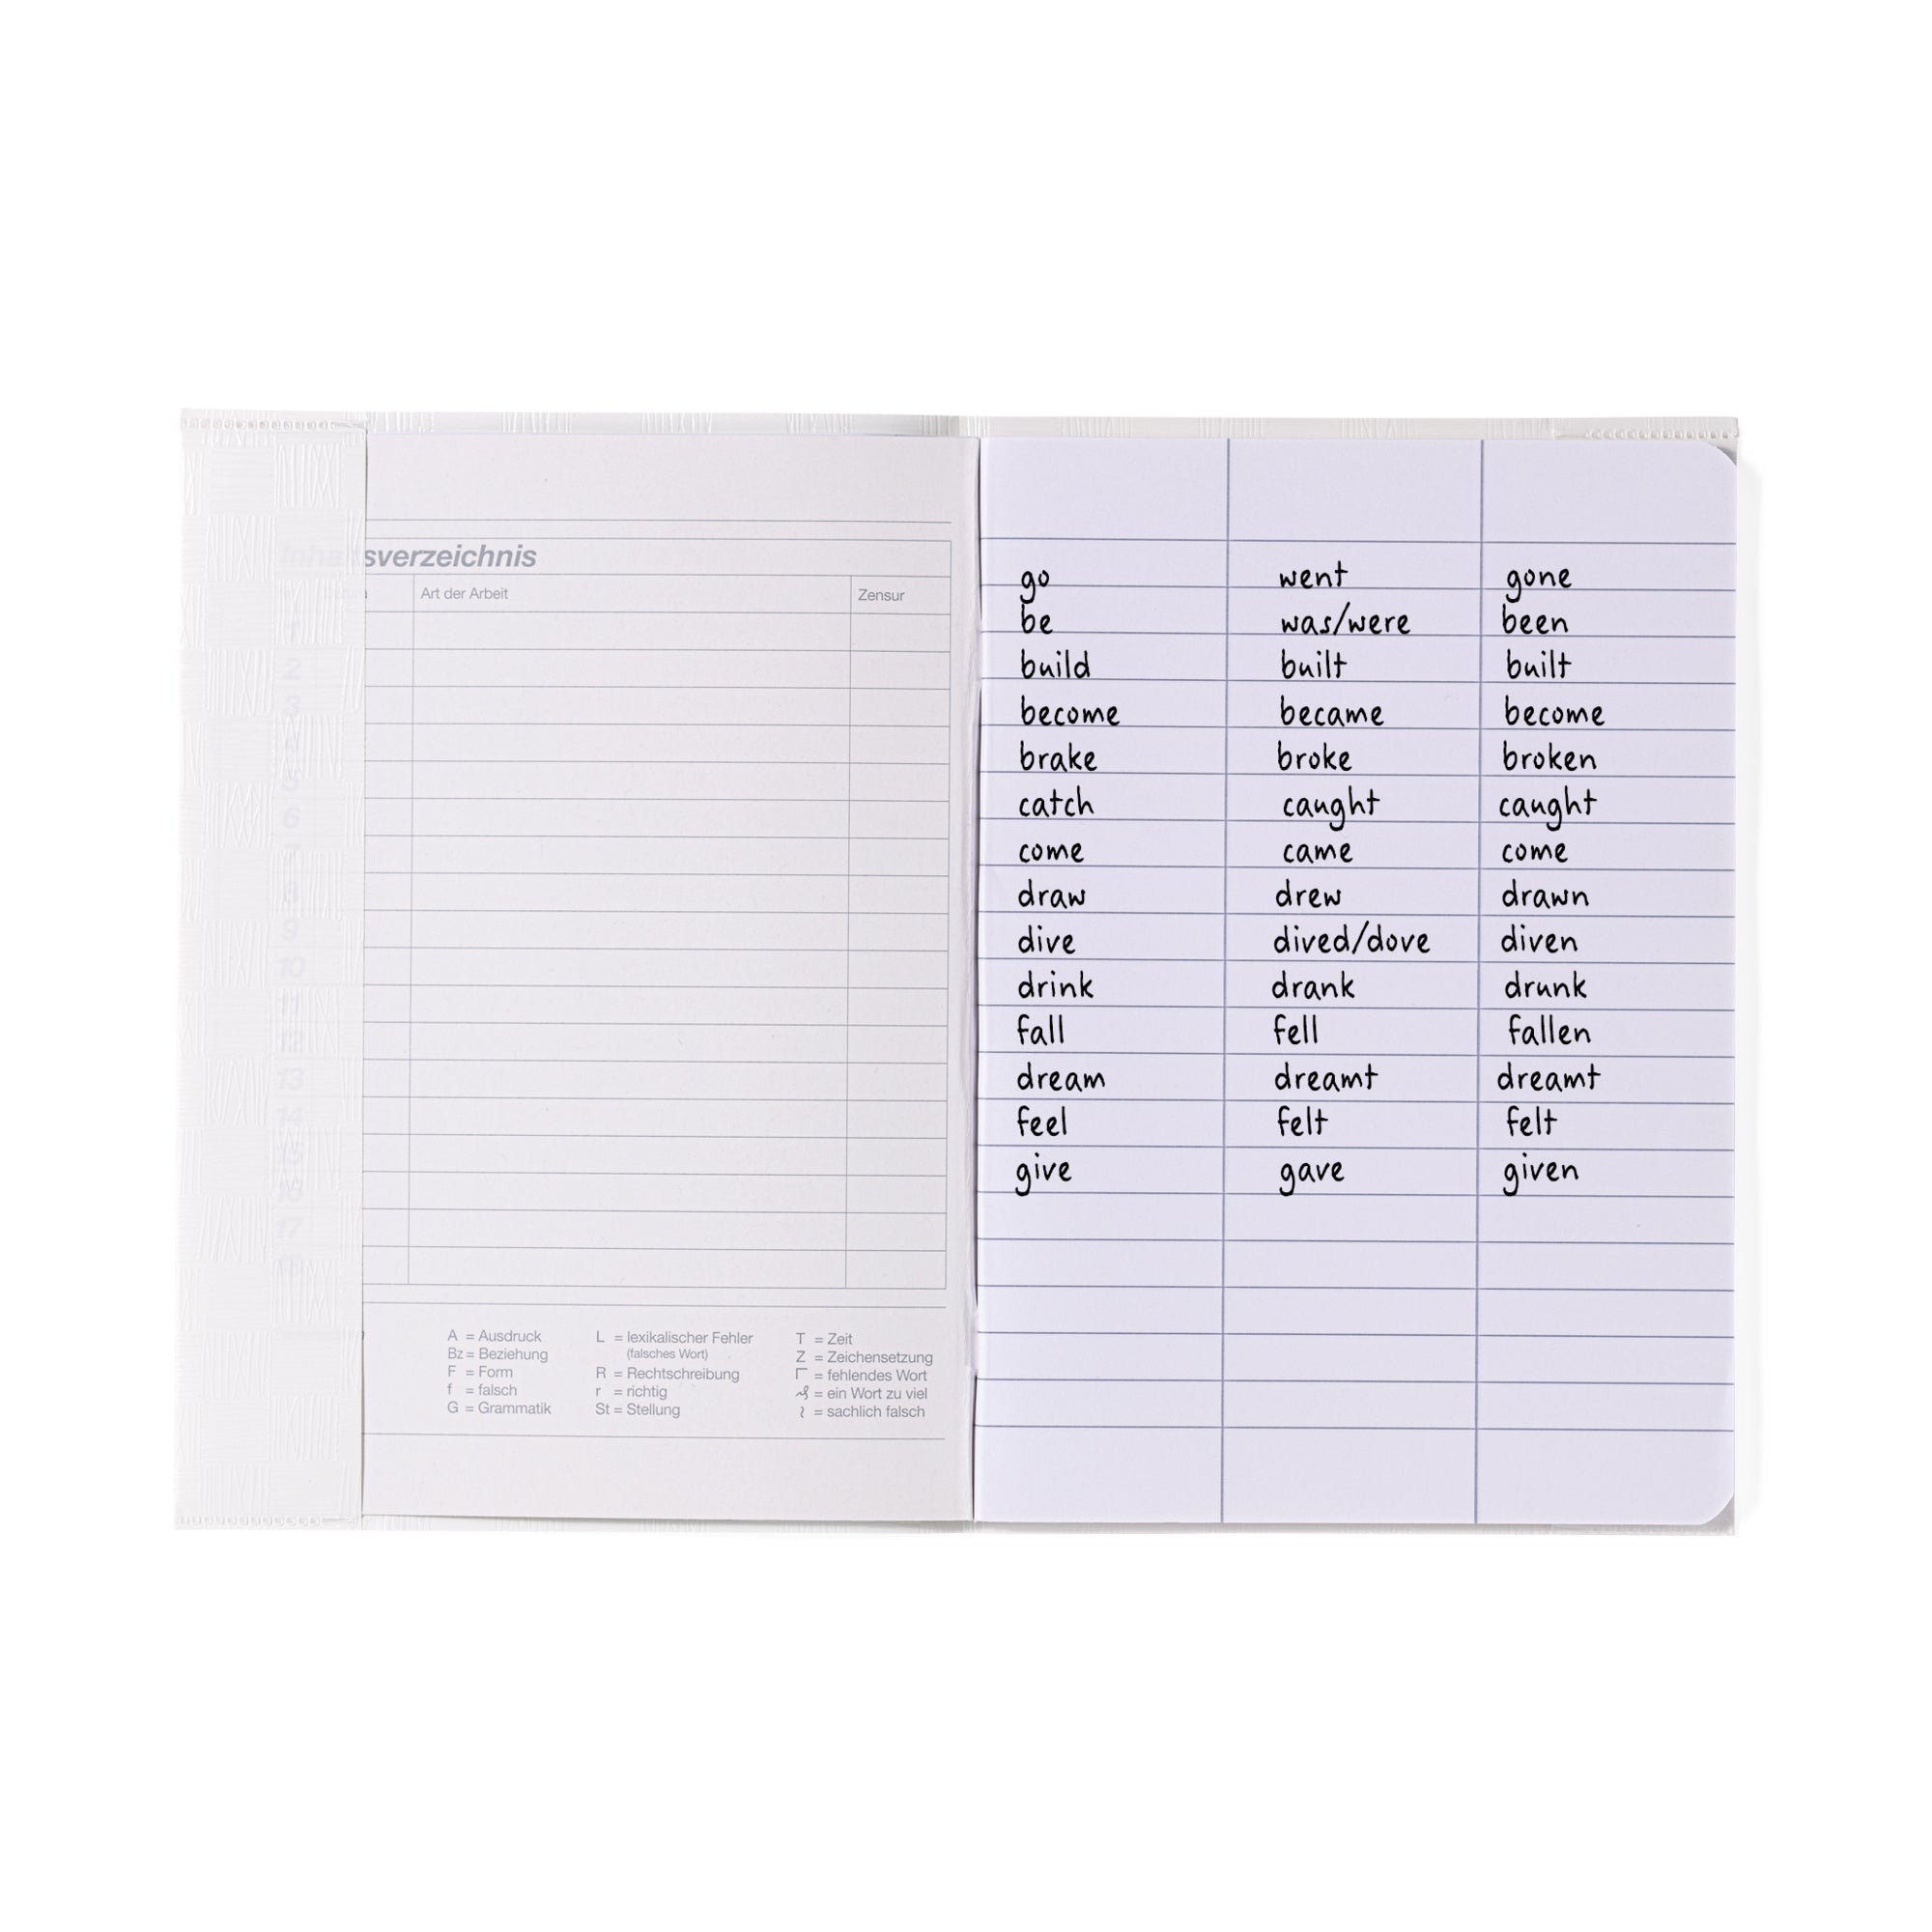 Inhaltsverzeichnis
Art der Arbeit Zensur
1
2
3
4
5
6
7
8
9
10
11
12
13
14
15
16
17
18
A = Ausdruck
Bz = Beziehung
F = Form
f = falsch
G = Grammatik
L = lexikalischer Fehler
(falsches Wort)
R = Rechtschreibung
r = richtig
St = Stellung
T = Zeit
Z = Zeichensetzung
Γ = fehlendes Wort
= ein Wort zu viel
= sachlich falsch
go went gone
be was/were been
build built built
become became become
brake broke broken
catch caught caught
come came come
draw drew drawn
dive dived/dove diven
drink drank drunk
fall fell fallen
dream dreamt dreamt
feel felt felt
give gave given